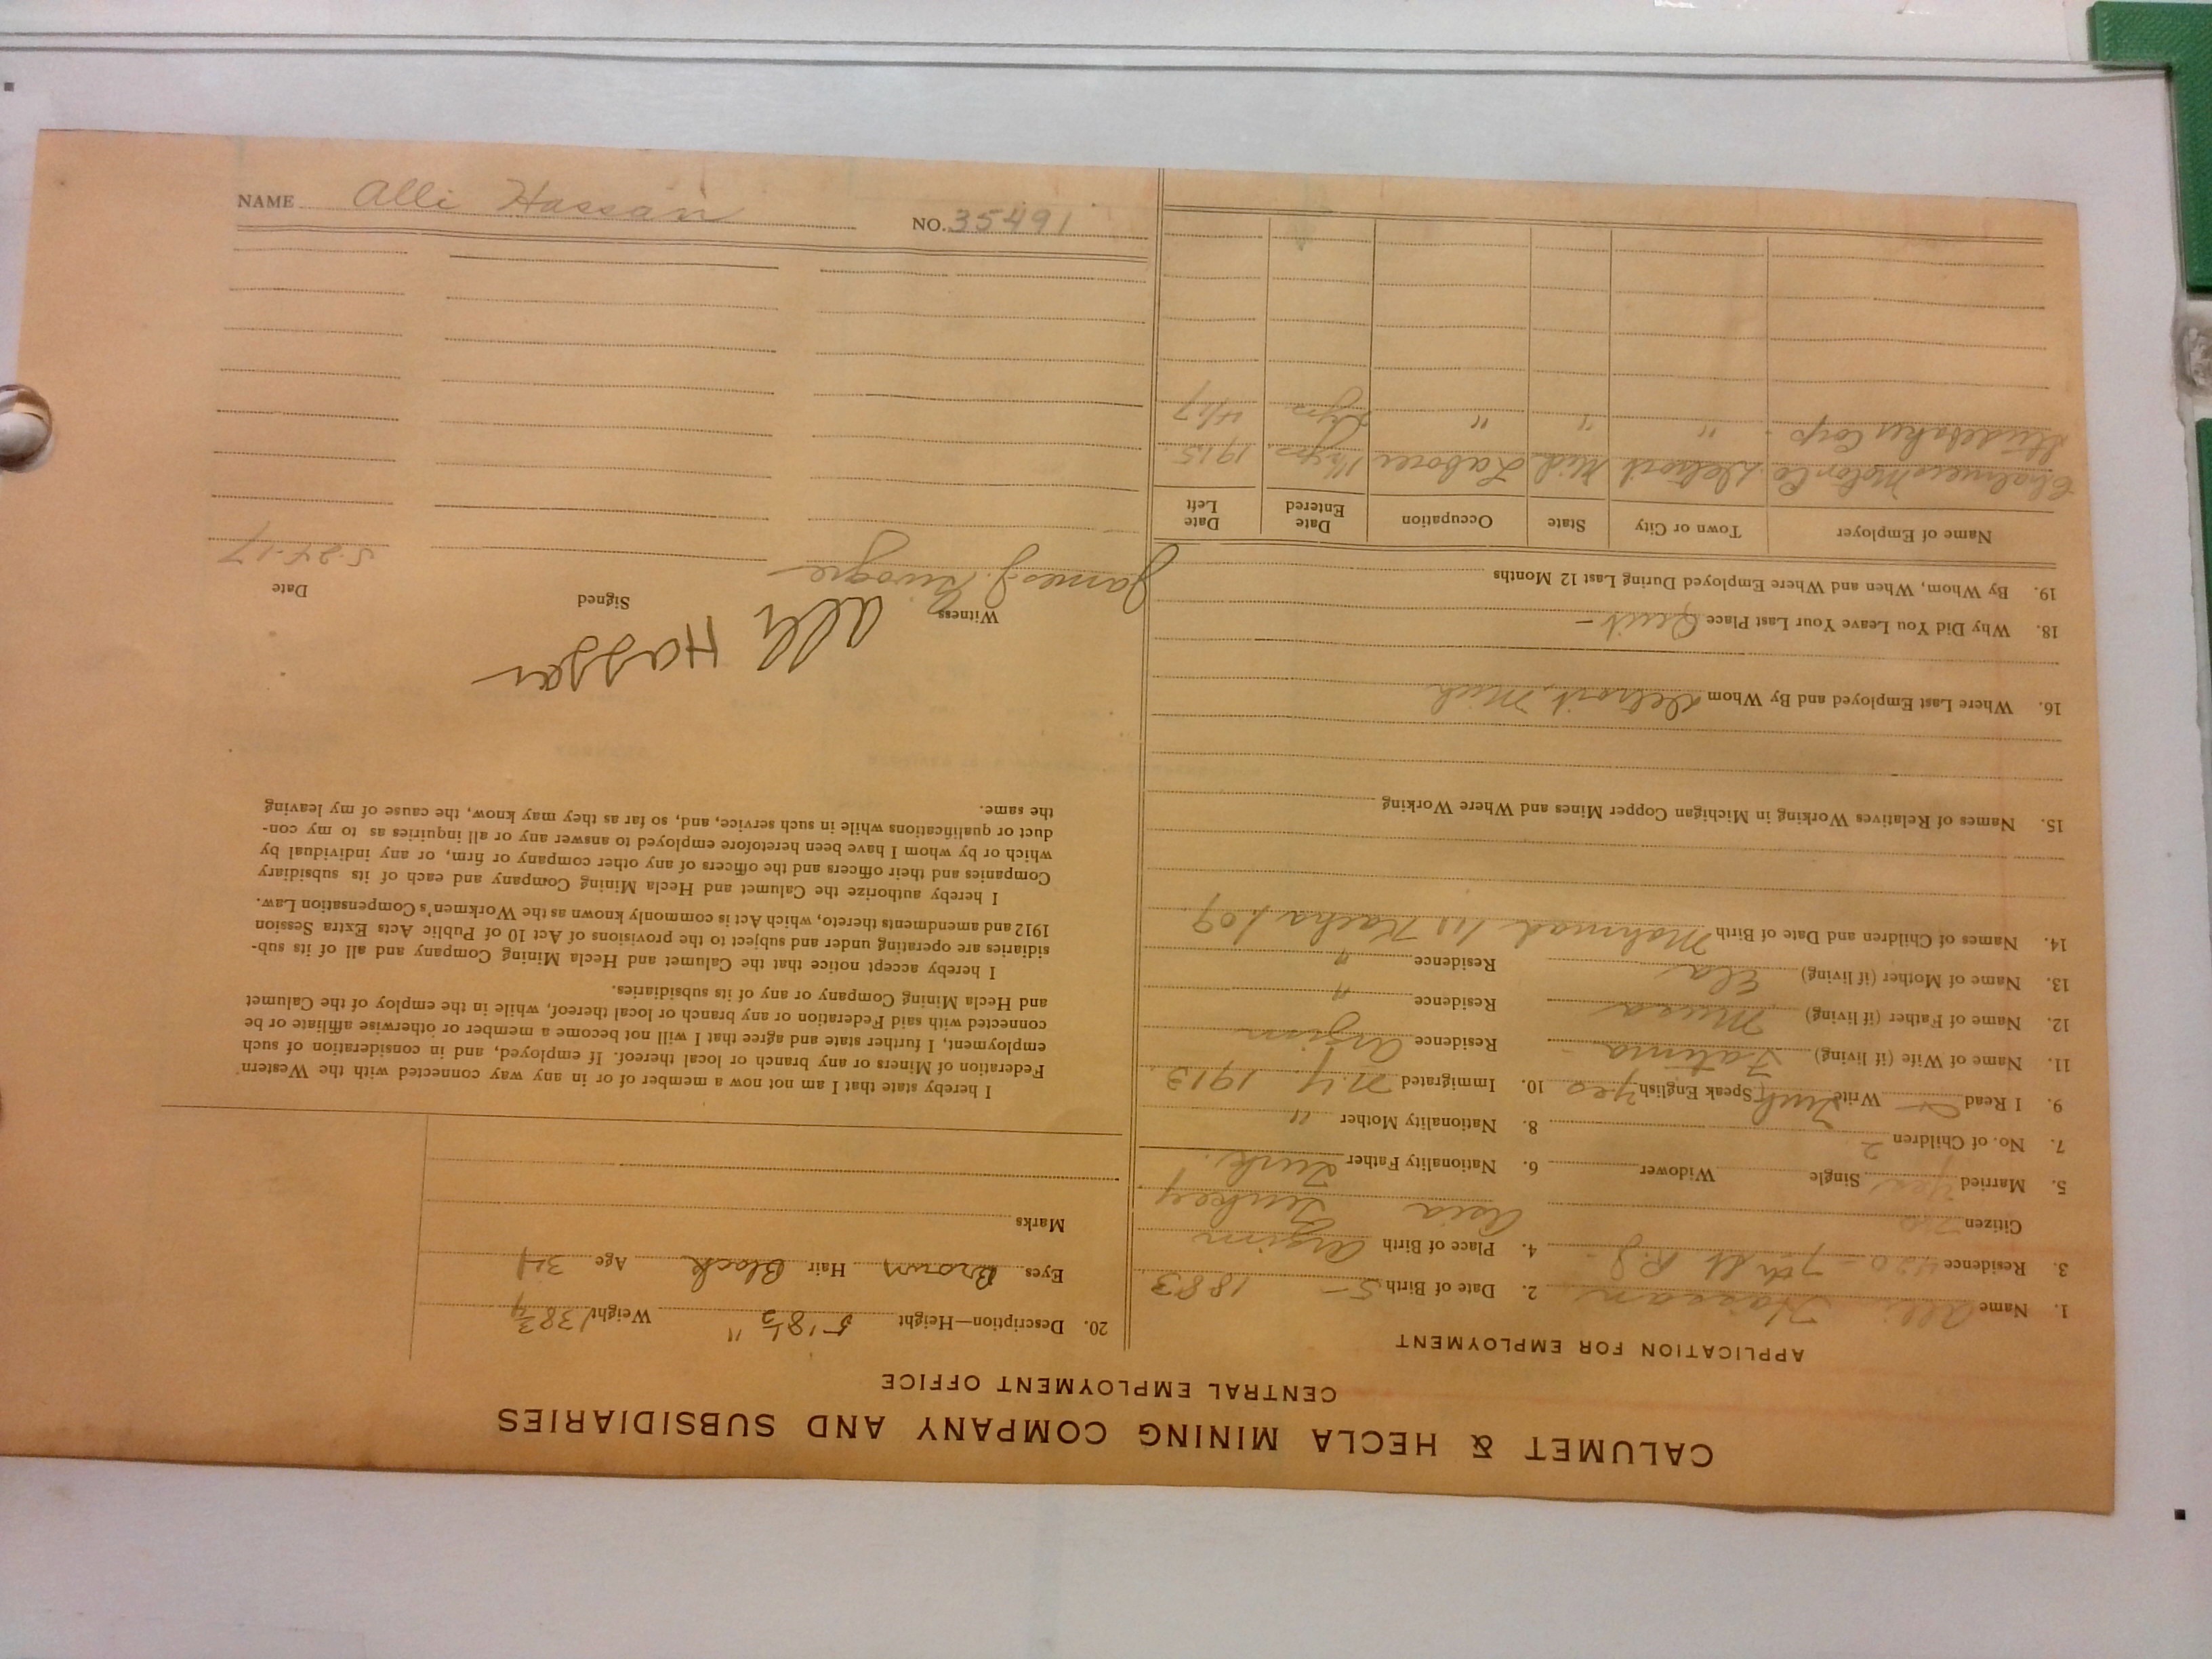 CALUMET & HECLA MINING COMPANY AND SUBSIDIARIES
CENTRAL EMPLOYMENT OFFICE
APPLICATION FOR EMPLOYMENT
1. Name Alli Hassan 2. Date of Birth 5 - 1883
3. Residence 420 - 7th St R.J. - 4. Place of Birth Arginn
Citizen no Asia Turkey
5. Married yes Single Widower 6. Nationality Father Turk.
7. No. of Children 2 8. Nationality Mother "
9. I Read Write Turk Speak English yes 10. Immigrated N.Y. 1913
11. Name of Wife (if living) Fatima Residence Arginn
12. Name of Father (if living) Mussa Residence "
13. Name of Mother (if living) Ela Residence "
14. Names of Children and Date of Birth Mohmad
15. Names of Relatives Working in Michigan Copper Mines and Where Working
16. Where Last Employed and By Whom Detroit, Mich.
18. Why Did You Leave Your Last Place Quit -
19. By Whom, When and Where Employed During Last 12 Months
Name of Employer Town or City State Occupation Date Entered Date Left
Chalmers Motor Co Detroit Mich Laborer 1½ yrs. 1915
Studebaker Corp " " " 2 yrs 4/17
20. Description—Height 5' 8½" Weight 138¾
Eyes Brown Hair Black Age 34
Marks
I hereby state that I am not now a member of or in any way connected with the Western
Federation of Miners or any branch or local thereof. If employed, and in consideration of such
employment, I further state and agree that I will not become a member or otherwise affiliate or be
connected with said Federation or any branch or local thereof, while in the employ of the Calumet
and Hecla Mining Company or any of its subsidiaries.
I hereby accept notice that the Calumet and Hecla Mining Company and all of its sub-
sidiaries are operating under and subject to the provisions of Act 10 of Public Acts Extra Session
1912 and amendments thereto, which Act is commonly known as the Workmen's Compensation Law.
I hereby authorize the Calumet and Hecla Mining Company and each of its subsidiary
Companies and their officers and the officers of any other company or firm, or any individual by
which or by whom I have been heretofore employed to answer any or all inquiries as to my con-
duct or qualifications while in such service, and, so far as they may know, the cause of my leaving
the same.
Alli Hassan
Witness Signed Date
James J. 5-24-17
NAME Alli Hassan NO. 35491